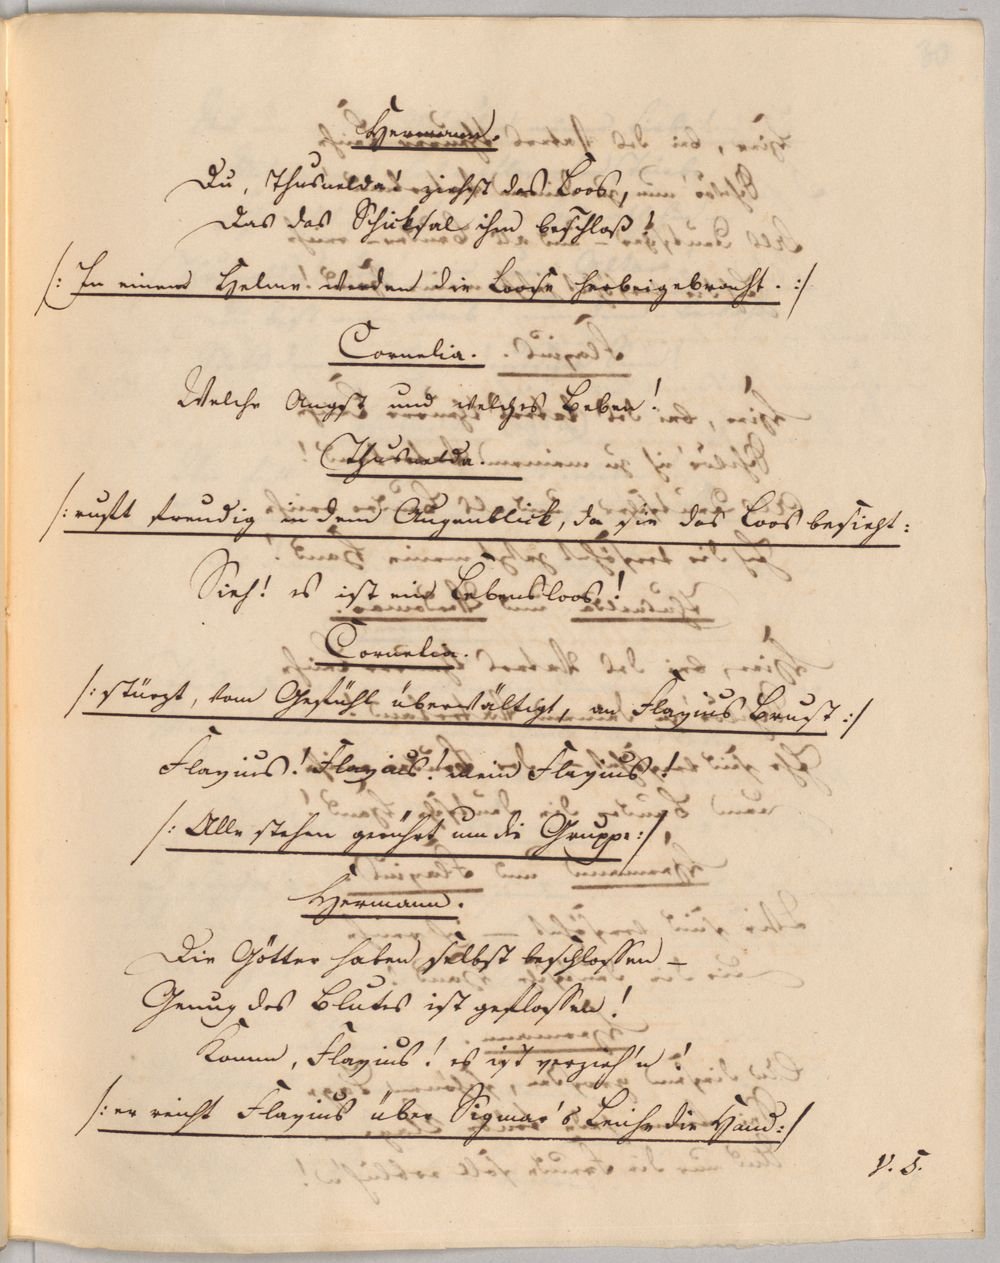 30
Hermann.
Du, Thusnelda! ziehst das Loos,
Das das Schicksal ihm beschloß!
/: In einem Helme werden die Loose herbeigebracht. :/
Cornelia.
Welche Angst und welches Beben!
Thusnelda.
/: ruft freudig in dem Augenblick, da sie das Loos besieht :
Sieh! es ist ein Lebensloos!
Cornelia.
/: stürzt, vom Gefühl überwältigt, an Flavius Brust :/
Flavius! Flavius! mein Flavius!
/: Alle stehen gerührt um die Gruppe :/
Hermann.
Die Götter haben selbst beschlossen –
Genug des Blutes ist geflossen!
Komm, Flavius! es ist verzieh'n!
/: er reicht Flavius über Sigmar's Leiche die Hand :/
V. S.